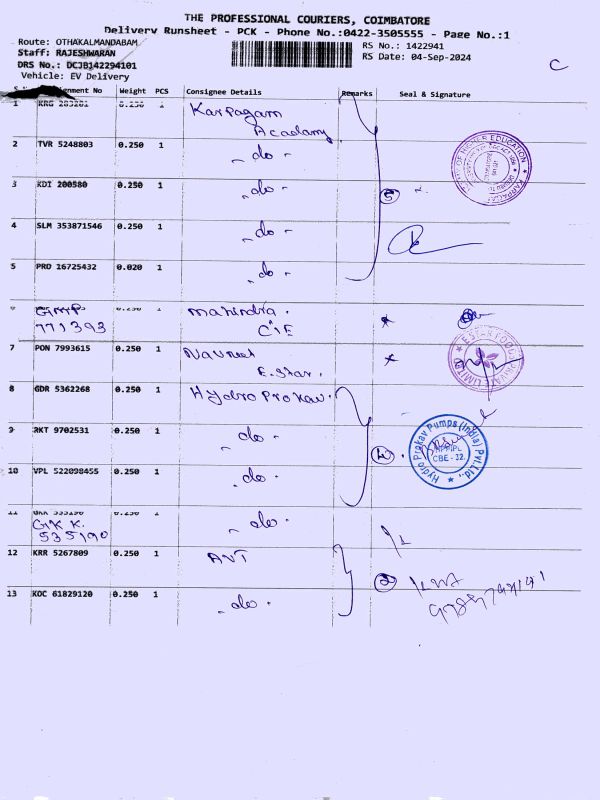 THE PROFESSIONAL COURIERS, COIMBATORE
Delivery Runsheet - PCK - Phone No.:0422-3505555 - Page No.:1
Route: OTHAKALMANDABAM
RS No.: 1422941
Staff: RAJESHWARAN
RS Date: 04-Sep-2024
DRS No.: DCJB142294101
Vehicle: EV Delivery
C
Weight PCS Consignee Details Remarks Seal & Signature
1 KRG 283281 0.250 1 Karpagam
Academy
2 TVR 5248803 0.250 1 - do -
3 KDI 200580 0.250 1 - do -
5
4 SLM 353871546 0.250 1 - do -
5 PRD 16725432 0.020 1 - do -
GMP 0.250 1 Mahindra.
771393 CIE
7 PON 7993615 0.250 1 Navneet
E.Star.
8 GDR 5362268 0.250 1 Hydro Prokav.
9 RKT 9702531 0.250 1 - do -
Hydro Prokav Pumps (India) Pvt.Ltd.
HPPIPL
CBE - 32.
10 VPL 522098455 0.250 1 - do -
11 GKK 535190 0.250 1 - do -
GKK.
535190
12 KRR 5267809 0.250 1 AVT
2
13 KOC 61829120 0.250 1 - do -